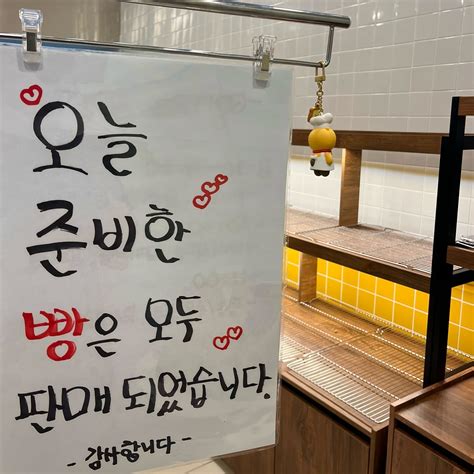 오늘
준비한
빵은 모두
판매 되었습니다.
- 감사합니다 -